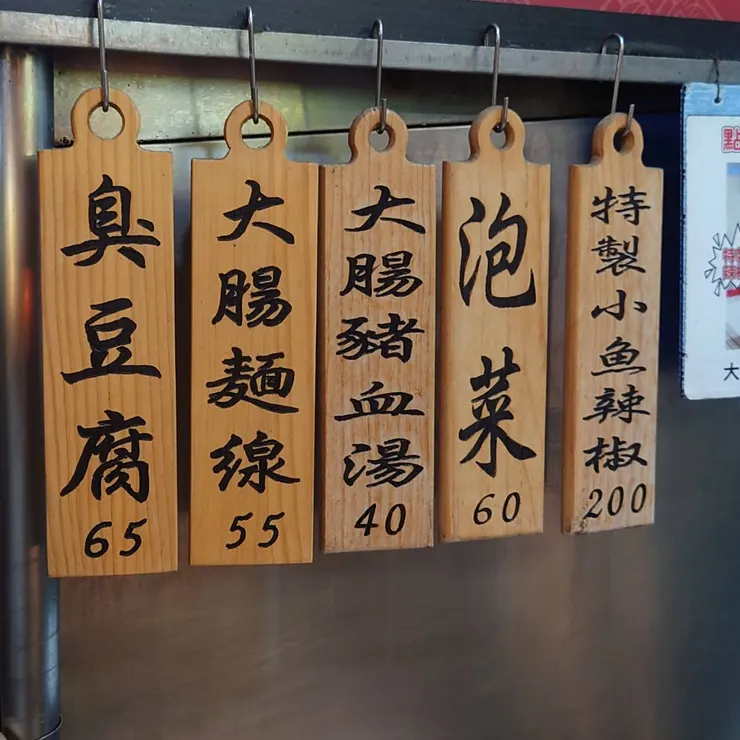 臭豆腐
65
大腸麵線
55
大腸豬血湯
40
泡菜
60
特製小魚辣椒
200
點
大